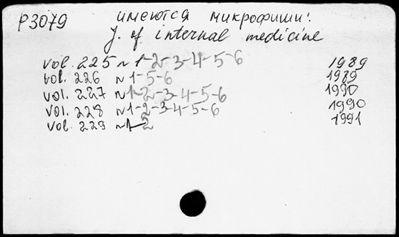 P3079 имеются микрофиши:
J. of internal medicine
vol. 225 N 1-2-3-4-5-6 1989
vol. 226 N 1-5-6 1989
vol. 227 N 1-2-3-4-5-6 1990
vol. 228 N 1-2-3-4-5-6 1990
vol. 229 N 1-2 1991